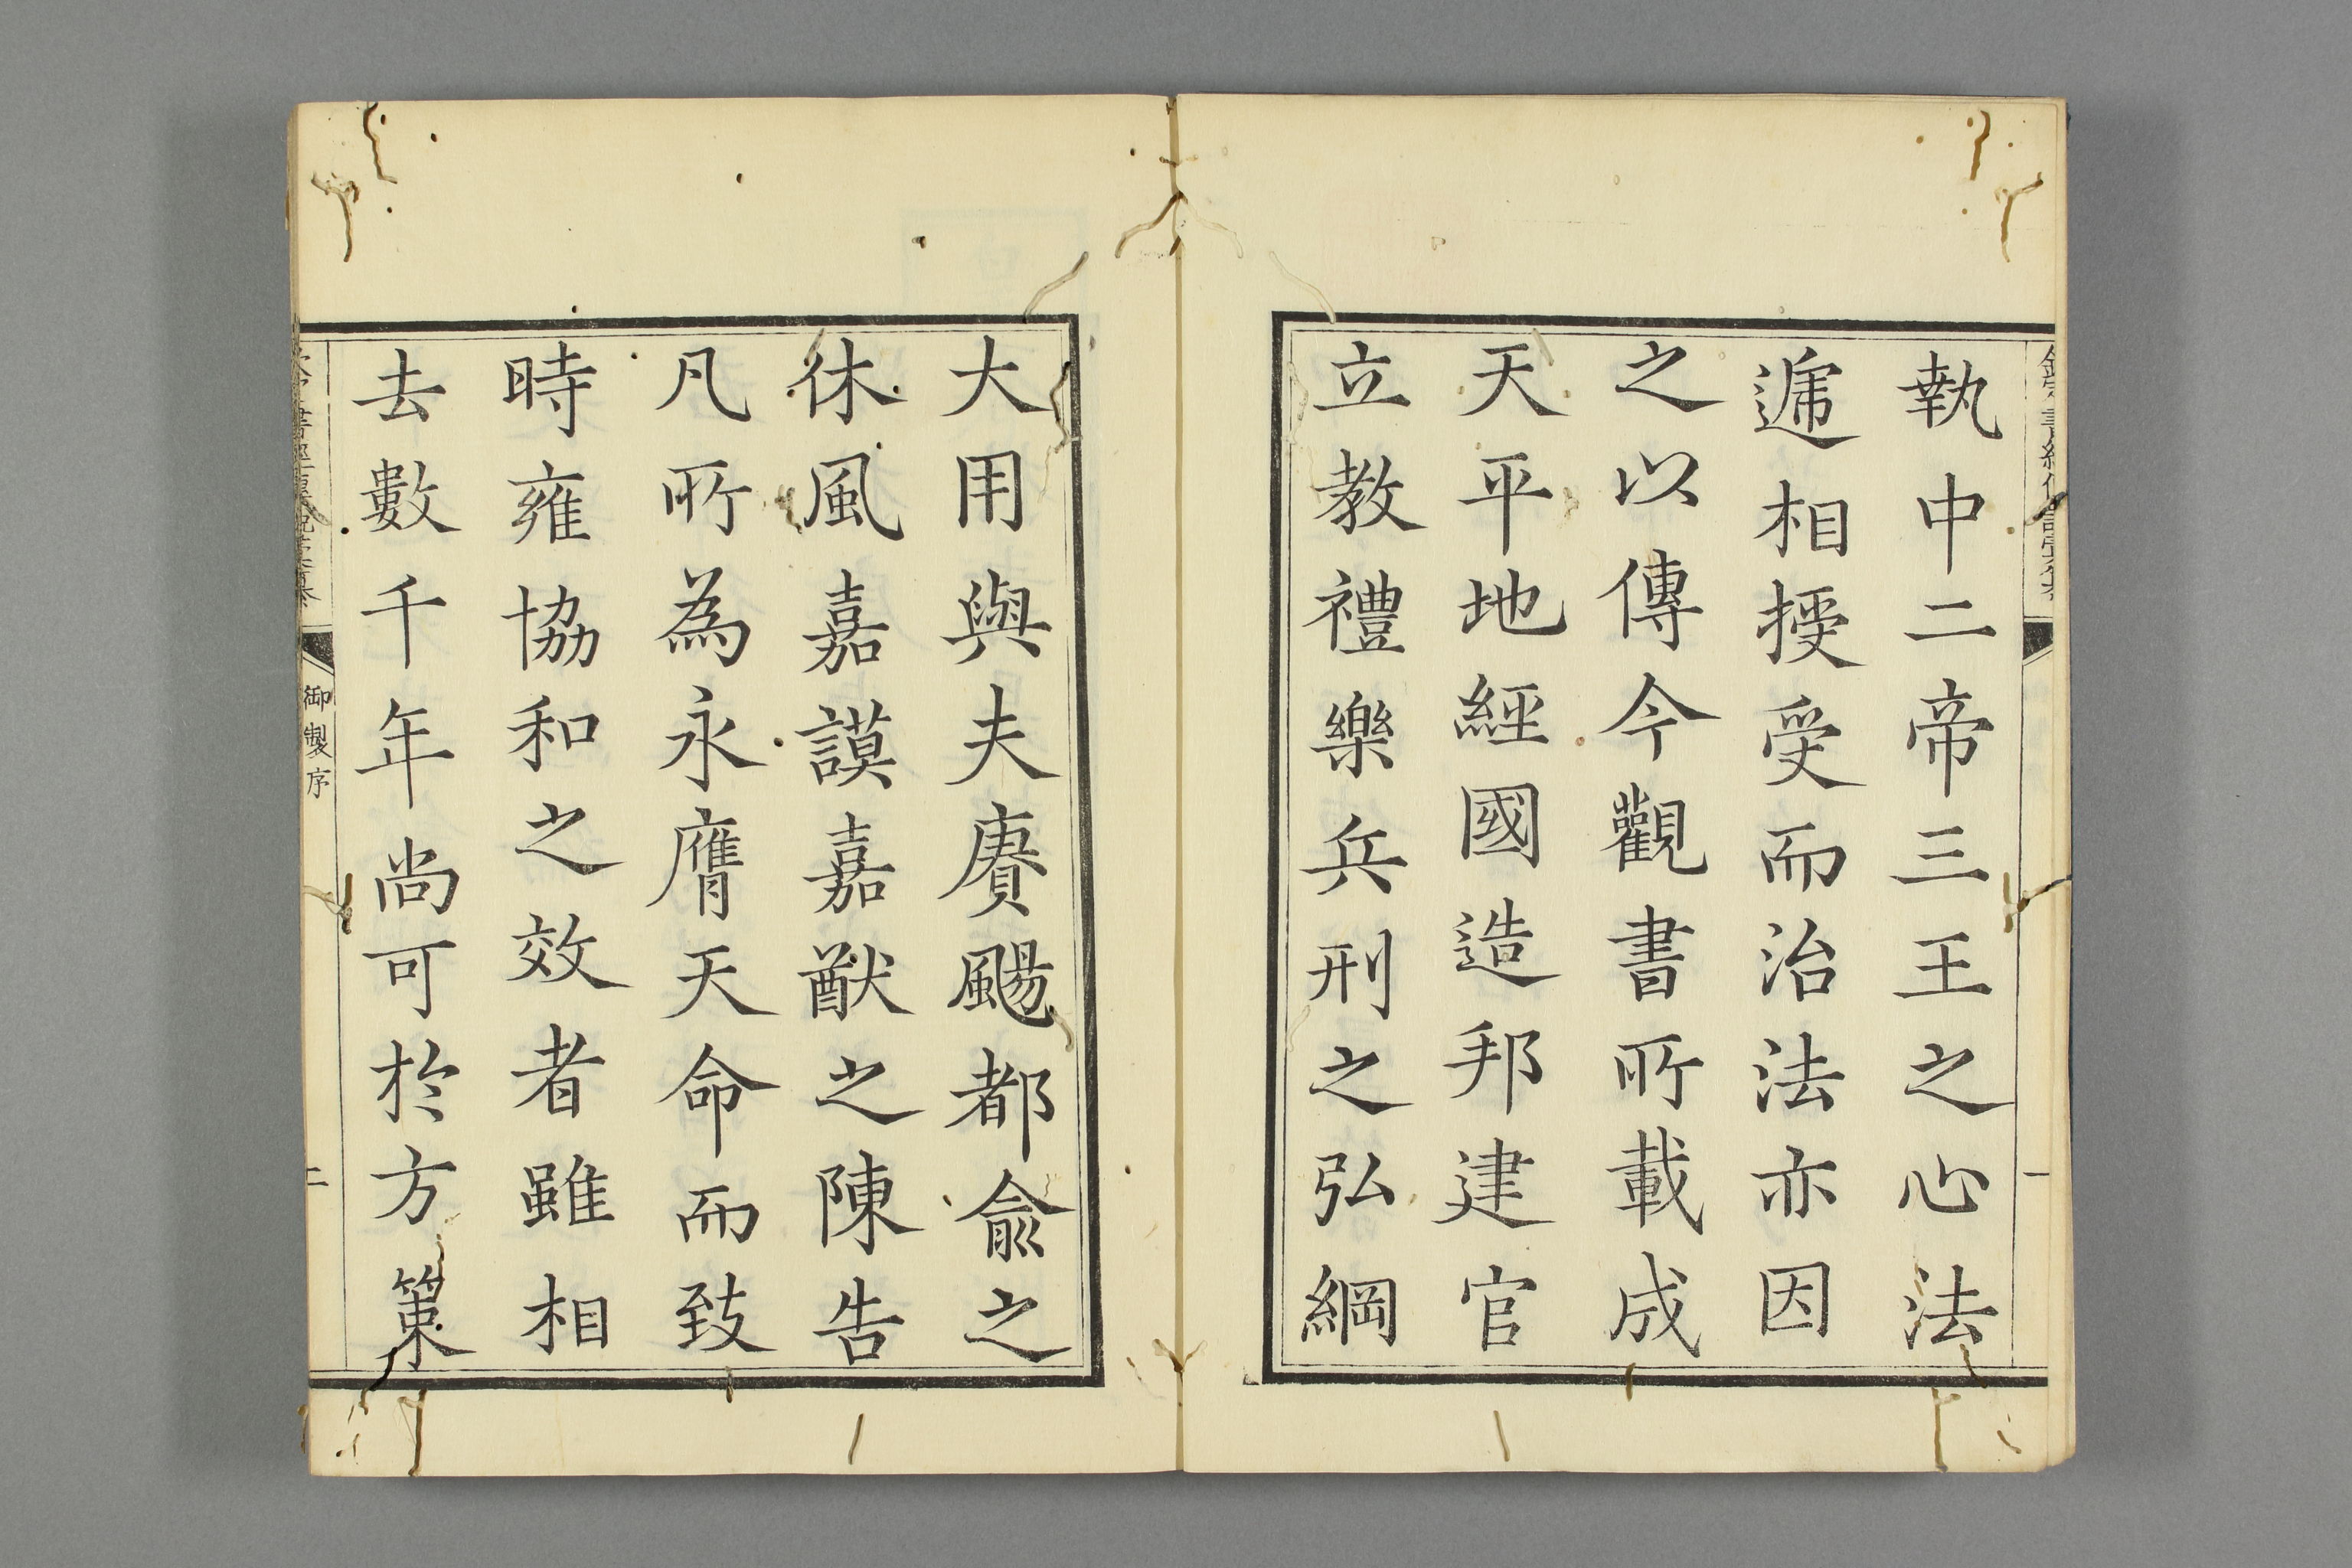 執中二帝三王之心法
遞相授受而治法亦因
之以傳今觀書所載成
天平地經國造邦建官
立教禮樂兵刑之弘綱
大用與夫賡颺都俞之
休風嘉謨嘉猷之陳告
凡所為永膺天命而致
時雍協和之效者雖相
去數千年尚可於方策
御製序